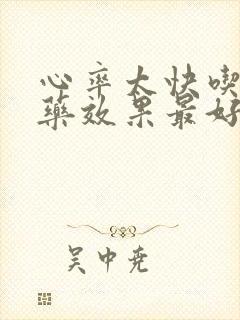 心率太快喫
藥效果最好
吴中尧